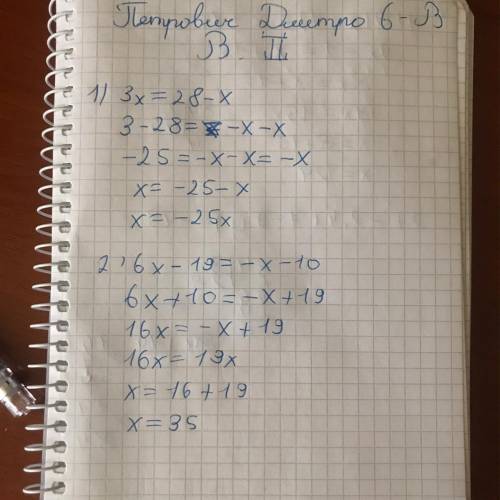 Петрович Дмитро 6-В
В. ІІ
1) 3x=28-x
3-28= -x-x
-25=-x-x=-x
x=-25-x
x=-25x
2) 6x-19=-x-10
6x+10=-x+19
16x=-x+19
16x=19x
x=16+19
x=35